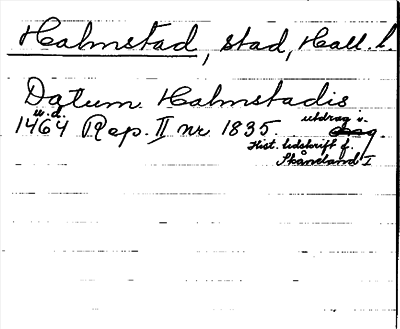 Halmstad, stad, Hall. l.
Datum Halmstadis
u.d.
1464 Rep. II nr 1835. utdrag i
Hist. tidskrift f.
Skåneland I